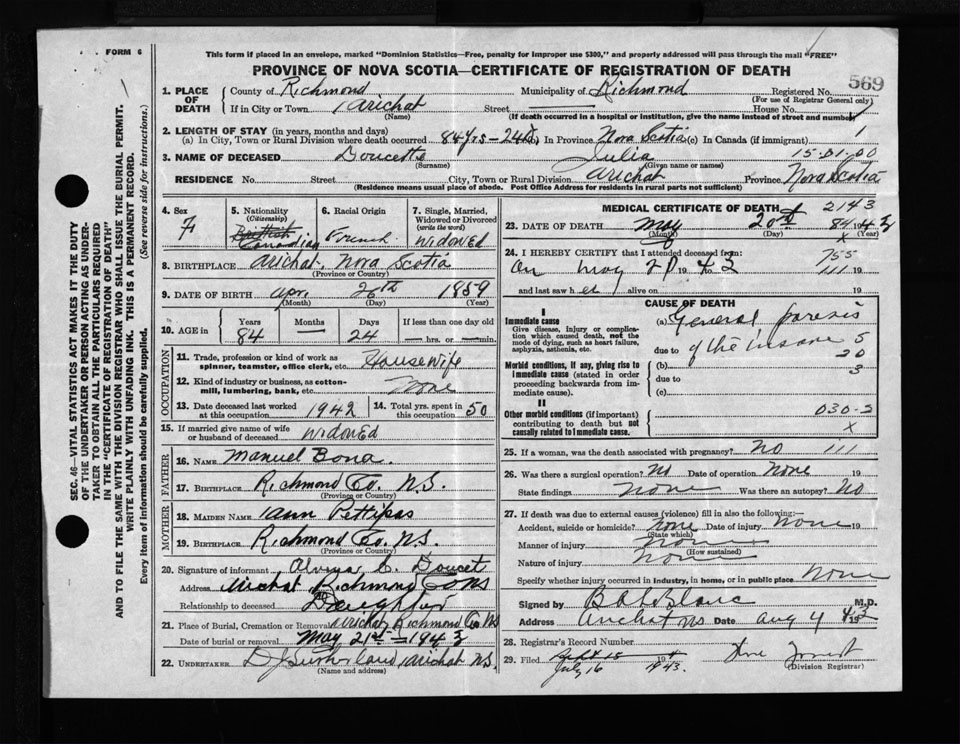 FORM 6
This form if placed in an envelope, marked "Dominion Statistics—Free, penalty for improper use $300," and properly addressed will pass through the mail "FREE"
PROVINCE OF NOVA SCOTIA—CERTIFICATE OF REGISTRATION OF DEATH
569
1. PLACE OF DEATH
County of Richmond Municipality of Richmond Registered No.
(For use of Registrar General only)
If in City or Town Arichat Street House No.
(Name) (If death occurred in a hospital or institution, give the name instead of street and number)
2. LENGTH OF STAY (in years, months and days)
(a) In City, Town or Rural Division where death occurred 84 yrs - 24 d (b) In Province Nova Scotia (c) In Canada (if immigrant)
3. NAME OF DECEASED Doucette Julia 15-01-00
(Surname) (Given name or names)
RESIDENCE No. Street City, Town or Rural Division Arichat Province Nova Scotia
(Residence means usual place of abode. Post Office Address for residents in rural parts not sufficient)
4. Sex F
5. Nationality (Citizenship) British Canadian
6. Racial Origin French
7. Single, Married, Widowed or Divorced (write the word) Widowed
8. BIRTHPLACE Arichat, Nova Scotia
(Province or Country)
9. DATE OF BIRTH Apr 26th 1859
(Month) (Day) (Year)
10. AGE in Years Months Days If less than one day
84 — 24 hrs. or min.
OCCUPATION
11. Trade, profession or kind of work as spinner, teamster, office clerk, etc. Housewife
12. Kind of industry or business, as cotton-mill, lumbering, bank, etc. None
13. Date deceased last worked at this occupation 1942
14. Total yrs. spent in this occupation 50
15. If married give name of wife or husband of deceased Widowed
FATHER
16. NAME Manuel Bona
17. BIRTHPLACE Richmond Co. N.S.
(Province or Country)
MOTHER
18. MAIDEN NAME Ann Pettipas
19. BIRTHPLACE Richmond Co. N.S.
(Province or Country)
20. Signature of informant C. Doucet
Address Arichat Richmond Co NS
Relationship to deceased Daughter
21. Place of Burial, Cremation or Removal Arichat Richmond Co NS
Date of burial or removal May 21st - 1943
22. UNDERTAKER Arichat N.S.
(Name and address)
MEDICAL CERTIFICATE OF DEATH 2143
23. DATE OF DEATH May 20th 84 43
(Month) (Day) (Year)
x
24. I HEREBY CERTIFY that I attended deceased from: 755
On May 20 1943 to 111 19
and last saw her alive on 19
CAUSE OF DEATH
I
Immediate cause
Give disease, injury or complication which caused death, not the mode of dying, such as heart failure, asphyxia, asthenia, etc.
(a) General paresis
due to of the insane 5
20
3
Morbid conditions, if any, giving rise to immediate cause (stated in order proceeding backwards from immediate cause).
(b)
due to
(c)
II
Other morbid conditions (if important) contributing to death but not causally related to immediate cause.
030-2
x
25. If a woman, was the death associated with pregnancy? No 111
26. Was there a surgical operation? No Date of operation None 19
State findings None Was there an autopsy? No
27. If death was due to external causes (violence) fill in also the following:—
Accident, suicide or homicide? None Date of injury None 19
(State which)
Manner of injury None
(How sustained)
Nature of injury None
Specify whether injury occurred in industry, in home, or in public place None
Signed by B A LeBlanc M.D.
Address Arichat NS Date Aug 4 1943
28. Registrar's Record Number
29. Filed July 16 1943.
(Division Registrar)
SEC. 46—VITAL STATISTICS ACT MAKES IT THE DUTY OF THE UNDERTAKER OR PERSON ACTING AS UNDERTAKER TO OBTAIN ALL THE PARTICULARS REQUIRED IN THE "CERTIFICATE OF REGISTRATION OF DEATH"
AND TO FILE THE SAME WITH THE DIVISION REGISTRAR WHO SHALL ISSUE THE BURIAL PERMIT.
WRITE PLAINLY WITH UNFADING INK. THIS IS A PERMANENT RECORD.
Every item of information should be carefully supplied. (See reverse side for instructions.)